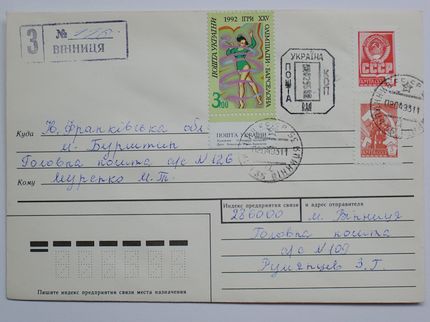 З № 
ВІННИЦЯ
1992 ІГРИ XXV
ОЛІМПІАДИ · БАРСЕЛОНА
ПОШТА УКРАЇНИ
3.00
ПОШТА УКРАЇНИ
УКРАЇНА
ПОШТА
КОП
СССР
Куди Ів. Франківська обл.
м. Бурштин
Головна пошта а/с N 126
Кому Муренко М.Т.
Индекс предприятия связи и адрес отправителя
286000 м. Вінниця
Головна пошта
а/с N 109
Румянцев З. Г.
Пишите индекс предприятия связи места назначения